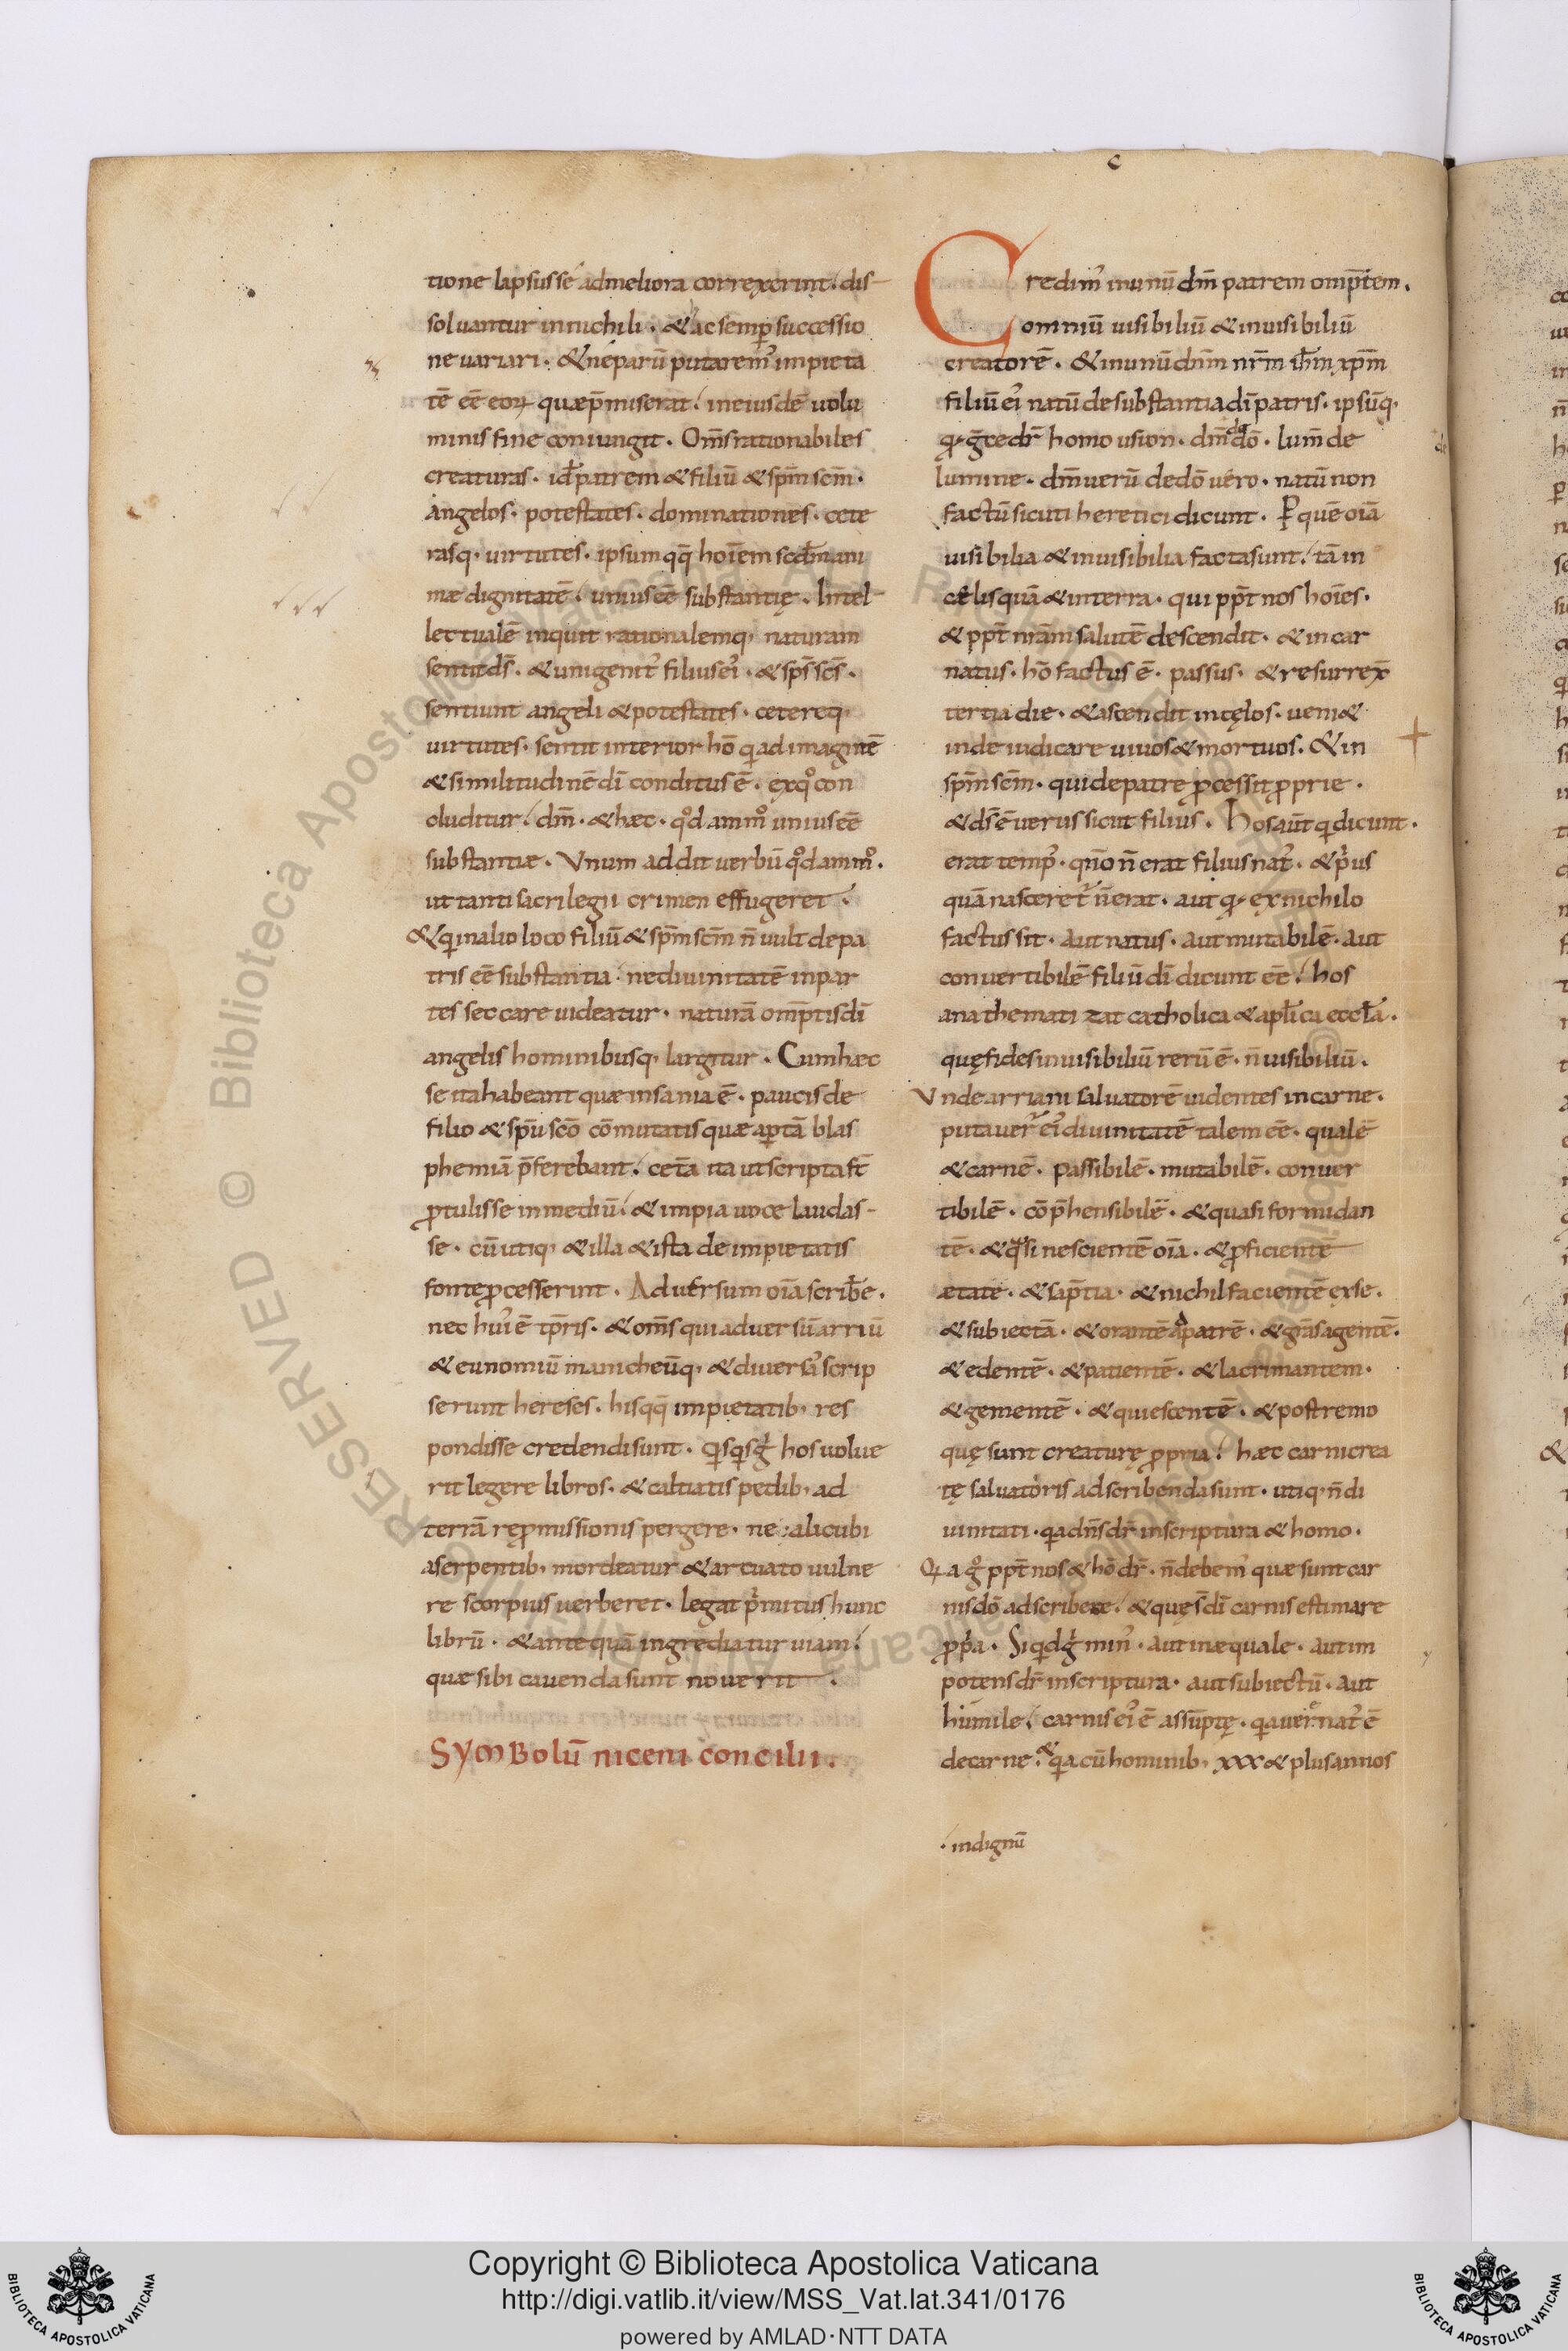 c
tione lapsus se ad meliora correxerint. dis-
soluantur in nichili. & ac semp̄ successio
ne variari. & ne parū putarem᾽ impieta
tē eē eoꝝ quæ p̄miserat. in eiusdē uolu
minis fine coniungit. Om̄s rationabiles
creaturas. id ē patrem & filiū & sp̄m sc̄m.
angelos. potestates. dominationes. cete
rasq; uirtutes. ipsum qq̄ hoīem scdm̄ ani
mæ dignitatē. unius eē substantię. Intel-
lectualē inquit rationalemq; naturam
sentit ds̄. & unigenit᾽ filius ei᾽. & sp̄s sc̄s.
sentiunt angeli & potestates. ceteręq;
uirtutes. sentit interior hō q̇ ad imaginē
& similitudinē dī conditus ē. ex q̊ con
cluditur. dm̄. & hæc. q̊dammº unius eē
substantiæ. Vnum addit uerbū q̊dammº.
ut tanti sacrilegii crimen effugeret.
& q̇ in alio loco filiū & sp̄m sc̄m n̄ uult de pa
tris eē substantia. ne diuinitatē in par
tes seccare uideatur. naturā omp̄tis dī
angelis hominibusq; largitur. Cum hæc
se ita habeant quæ insania ē. paucis de
filio & sp̄u scō cōmutatis quæ aptā blas
phemiā p̄ferebant. cet̄a ita ut scripta st̄
ꝓtulisse in mediū. & impia uoce laudas-
se. cū utiq; & illa & ista de impietatis
fonte ꝓcesserint. Aduersum oīa scribe.
nec hui᾽ ē tp̄ris. & om̄s qui aduersū arriū
& eunomiū manicheūq; & diuersas scrip
serunt hereses. hisqq̄ impietatib; res
pondisse credendi sunt. Qisqis g̊ hos uolue
rit legere libros. & calciatis pedib; ad
terrā repromissionis pergere. ne alicubi
a serpentib; mordeatur & arcuato uulne
re scorpius uerberet. legat p̄mitus hunc
librū. & ante quā ingrediatur uiam.
quæ sibi cauenda sunt nouerit.
Symbolū niceni concilii.
Credim᾽ in unū dm̄ patrem omp̄tem.
omniū uisibiliū & inuisibiliū
creatorē. & in unū dn̄m nr̄m ih̄m xp̄m
filiū ei᾽ natū de substantia dī patris. ipsūq;
q̇ grece dr̄ homo usion. dm̄ de dō. lum̄ de
lumine. dm̄ uerū de dō uero. natū non
factū sicuti heretici dicunt. P quē oīa
uisibilia & inuisibilia facta sunt. tā in
cęlis quā & in terra. qui ppt̄ nos hoīes.
& ppt̄ nr̄am salutē descendit. & incar
natus. hō factus ē. passus. & resurrex̄
tertia die. & ascendit in cęlos. ueni&
inde iudicare uiuos & mortuos. & in
sp̄m sc̄m. qui de patre ꝓcessit ꝓprie.
& ds̄ ē uerus sicut filius. Hos aut̄ q̇ dicunt.
erat temp᾽. qn̄o n̄ erat filius nat᾽. & p̄us
quā nasceret᾽ n̄ erat. aut q̇ ex nichilo
factus sit. aut natus. aut mutabilē. aut
conuertibilē filiū dī dicunt eē. hos
anathematizat catholica & apl̄ica eccl̄a.
quę fides inuisibiliū rerū ē. n̄ uisibiliū.
Vnde arriani saluatorē uidentes in carne.
putauer᾽ ei᾽ diuinitatē talem eē. qualē
& carnē. passibilē. mutabilē. conuer
tibilē. cōp̄hensibilē. & quasi formidan
tē. & q̊si nescientē oīa. & ꝓficientē
ætate. & sap̄tia. & nichil facientē ex se.
& subiectā. & orantē a patrē. & gr̄as agentē.
& edentē. & patientē. & lacrimantem.
& gementē. & quiescentē. & postremo
quę sunt creaturę ꝓpria. hæc carni crea
tę saluatoris adscribenda sunt. utiq; n̄ di
uinitati. q̇a dn̄s dr̄ in scriptura & homo.
Qa g̊ ppt̄ nos & hō dr̄. n̄ debem᾽ quæ sunt car
nis dō adscribere. & quęs dī carnis estimare
ꝓp̄a. Si qid g̊ min᾽. aut inæquale. aut im
potens dr̄ in scriptura. aut subiectū. aut
humile. carnis ei᾽ ē assūptę. q̇a uere nat᾽ ē
de carne. & q̇a cū hominib; xxx & plus annos
indignū
Copyright © Biblioteca Apostolica Vaticana
http://digi.vatlib.it/view/MSS_Vat.lat.341/0176
powered by AMLAD·NTT DATA